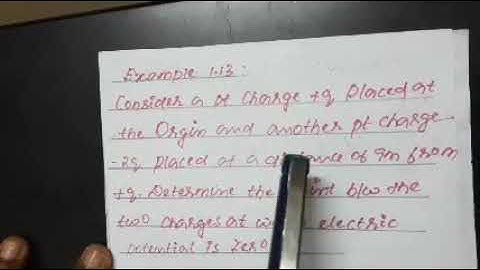 Example 1.13:
Consider a pt charge +q placed at
the Orgin and another pt charge
-2q placed at a of 9m from
+q. Determine the b/w the
two charges at electric
potential is zero